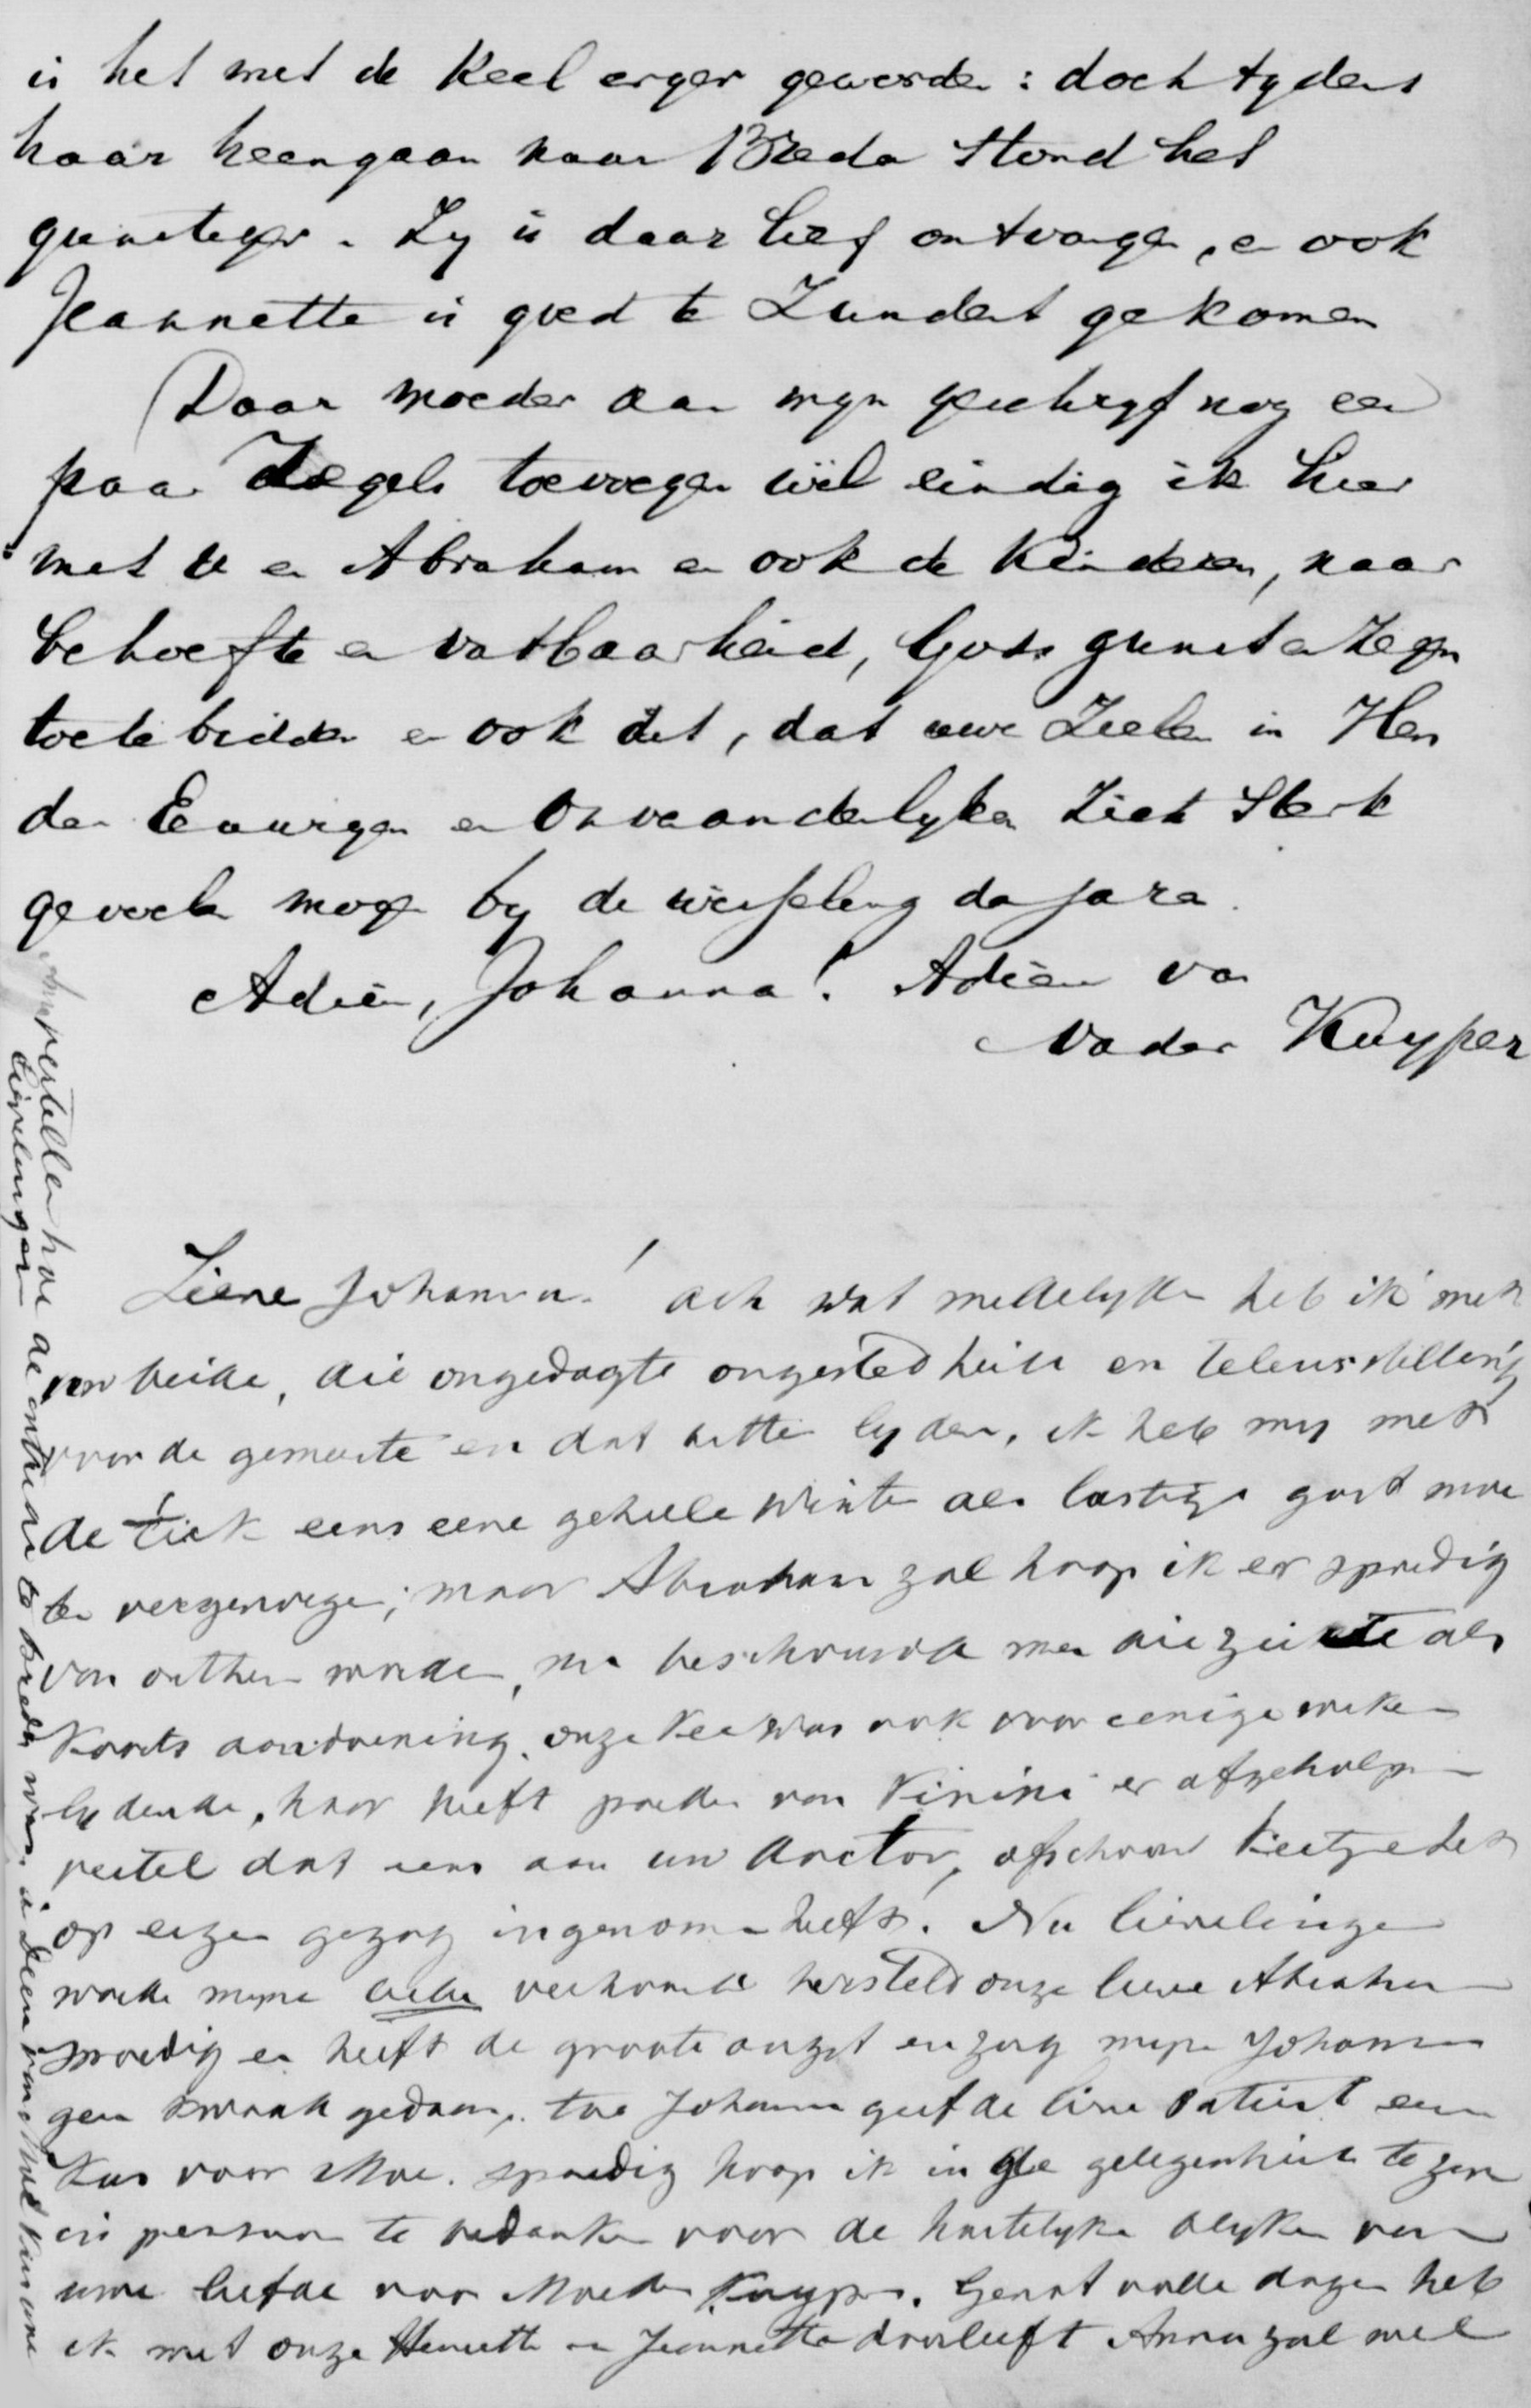 is het met de Keel erger geworden: doch tydens
haar heengaan naar Breda stond het
gunstiger. Zy is daar lief ontvangen, en ook
Jeannette is goed te Zundert gekomen
Daar moeder aan myn geschryf nog een
paar Regels toevoegen wil eindig ik hier
met U en Abraham en ook de Kinderen, naar
behoefte en vatbaarheid, Gods gunst en Zegen
toetebidden en ook dit, dat uwe Zielen in Hem
den Eeuwigen en Onveranderlyken Zich Sterk
gevoelen mogen by de wisseling der jaren.
Adieu, Johanna! Adieu van
Vader Kuyper
Lieve Johanna! ach wat medelyden heb ik met
u beide, die ongedagte ongesteldheid en teleurstelling
voor de gemeente en dat bitter lyden, ik heb my met
de tiek eens eene geheele winter als lastige gast moe
ten vergenoegen; maar Abraham zal hoop ik er spoedig
van ontheven worden, men beschouwde men die ziekte als
Koorts aandoening. onze Kee was ook voor eenige weken
lydende, haar heeft poeder van Kinine er afgeholpen
vertel dat eens aan uw doctor, ofschoon Keetje het
op eigen gezag ingenomen heeft. Nu lievelingen
worde myne bede verhoord hersteld onze lieve Abraham
spoedig en heeft de groote angst en zorg myn Johanna
geen kwaad gedaan, toe Johanna geef de lieve Patient een
Kus voor Moe. spoedig hoop ik in de gelegenheid te zyn
in persoon te bedanken voor de hartelyke blyken van
uwe liefde voor Moeder Kuyper. Genot volle dagen heb
ik met onze Henriette en Jeannette doorleeft Anna zal wel
vertellen hoe de ontvangst te Breda was.
lievelingen